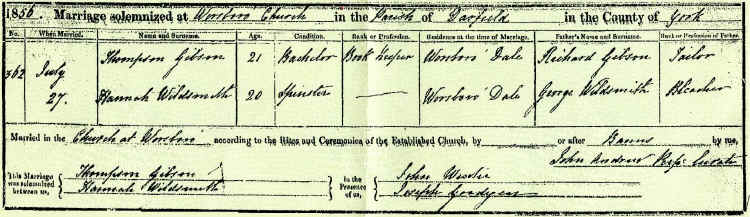 1856. Marriage solemnized at Worsbro Church in the Parish of Darfield in the County of York
No. When Married. Name and Surname. Age. Condition. Rank or Profession. Residence at the time of Marriage. Father's Name and Surname. Rank or Profession of Father.
362 July 27. Thompson Gibson 21 Bachelor Book Keeper Worsbro' Dale Richard Gibson Tailor
Hannah Wildsmith 20 Spinster — Worsbro' Dale George Wildsmith Bleacher
Married in the Church at Worsbro' according to the Rites and Ceremonies of the Established Church, by or after Banns by me,
John Andrew Perp: Curate
This Marriage was solemnized between us, Thompson Gibson Hannah Wildsmith in the Presence of us, John Joseph